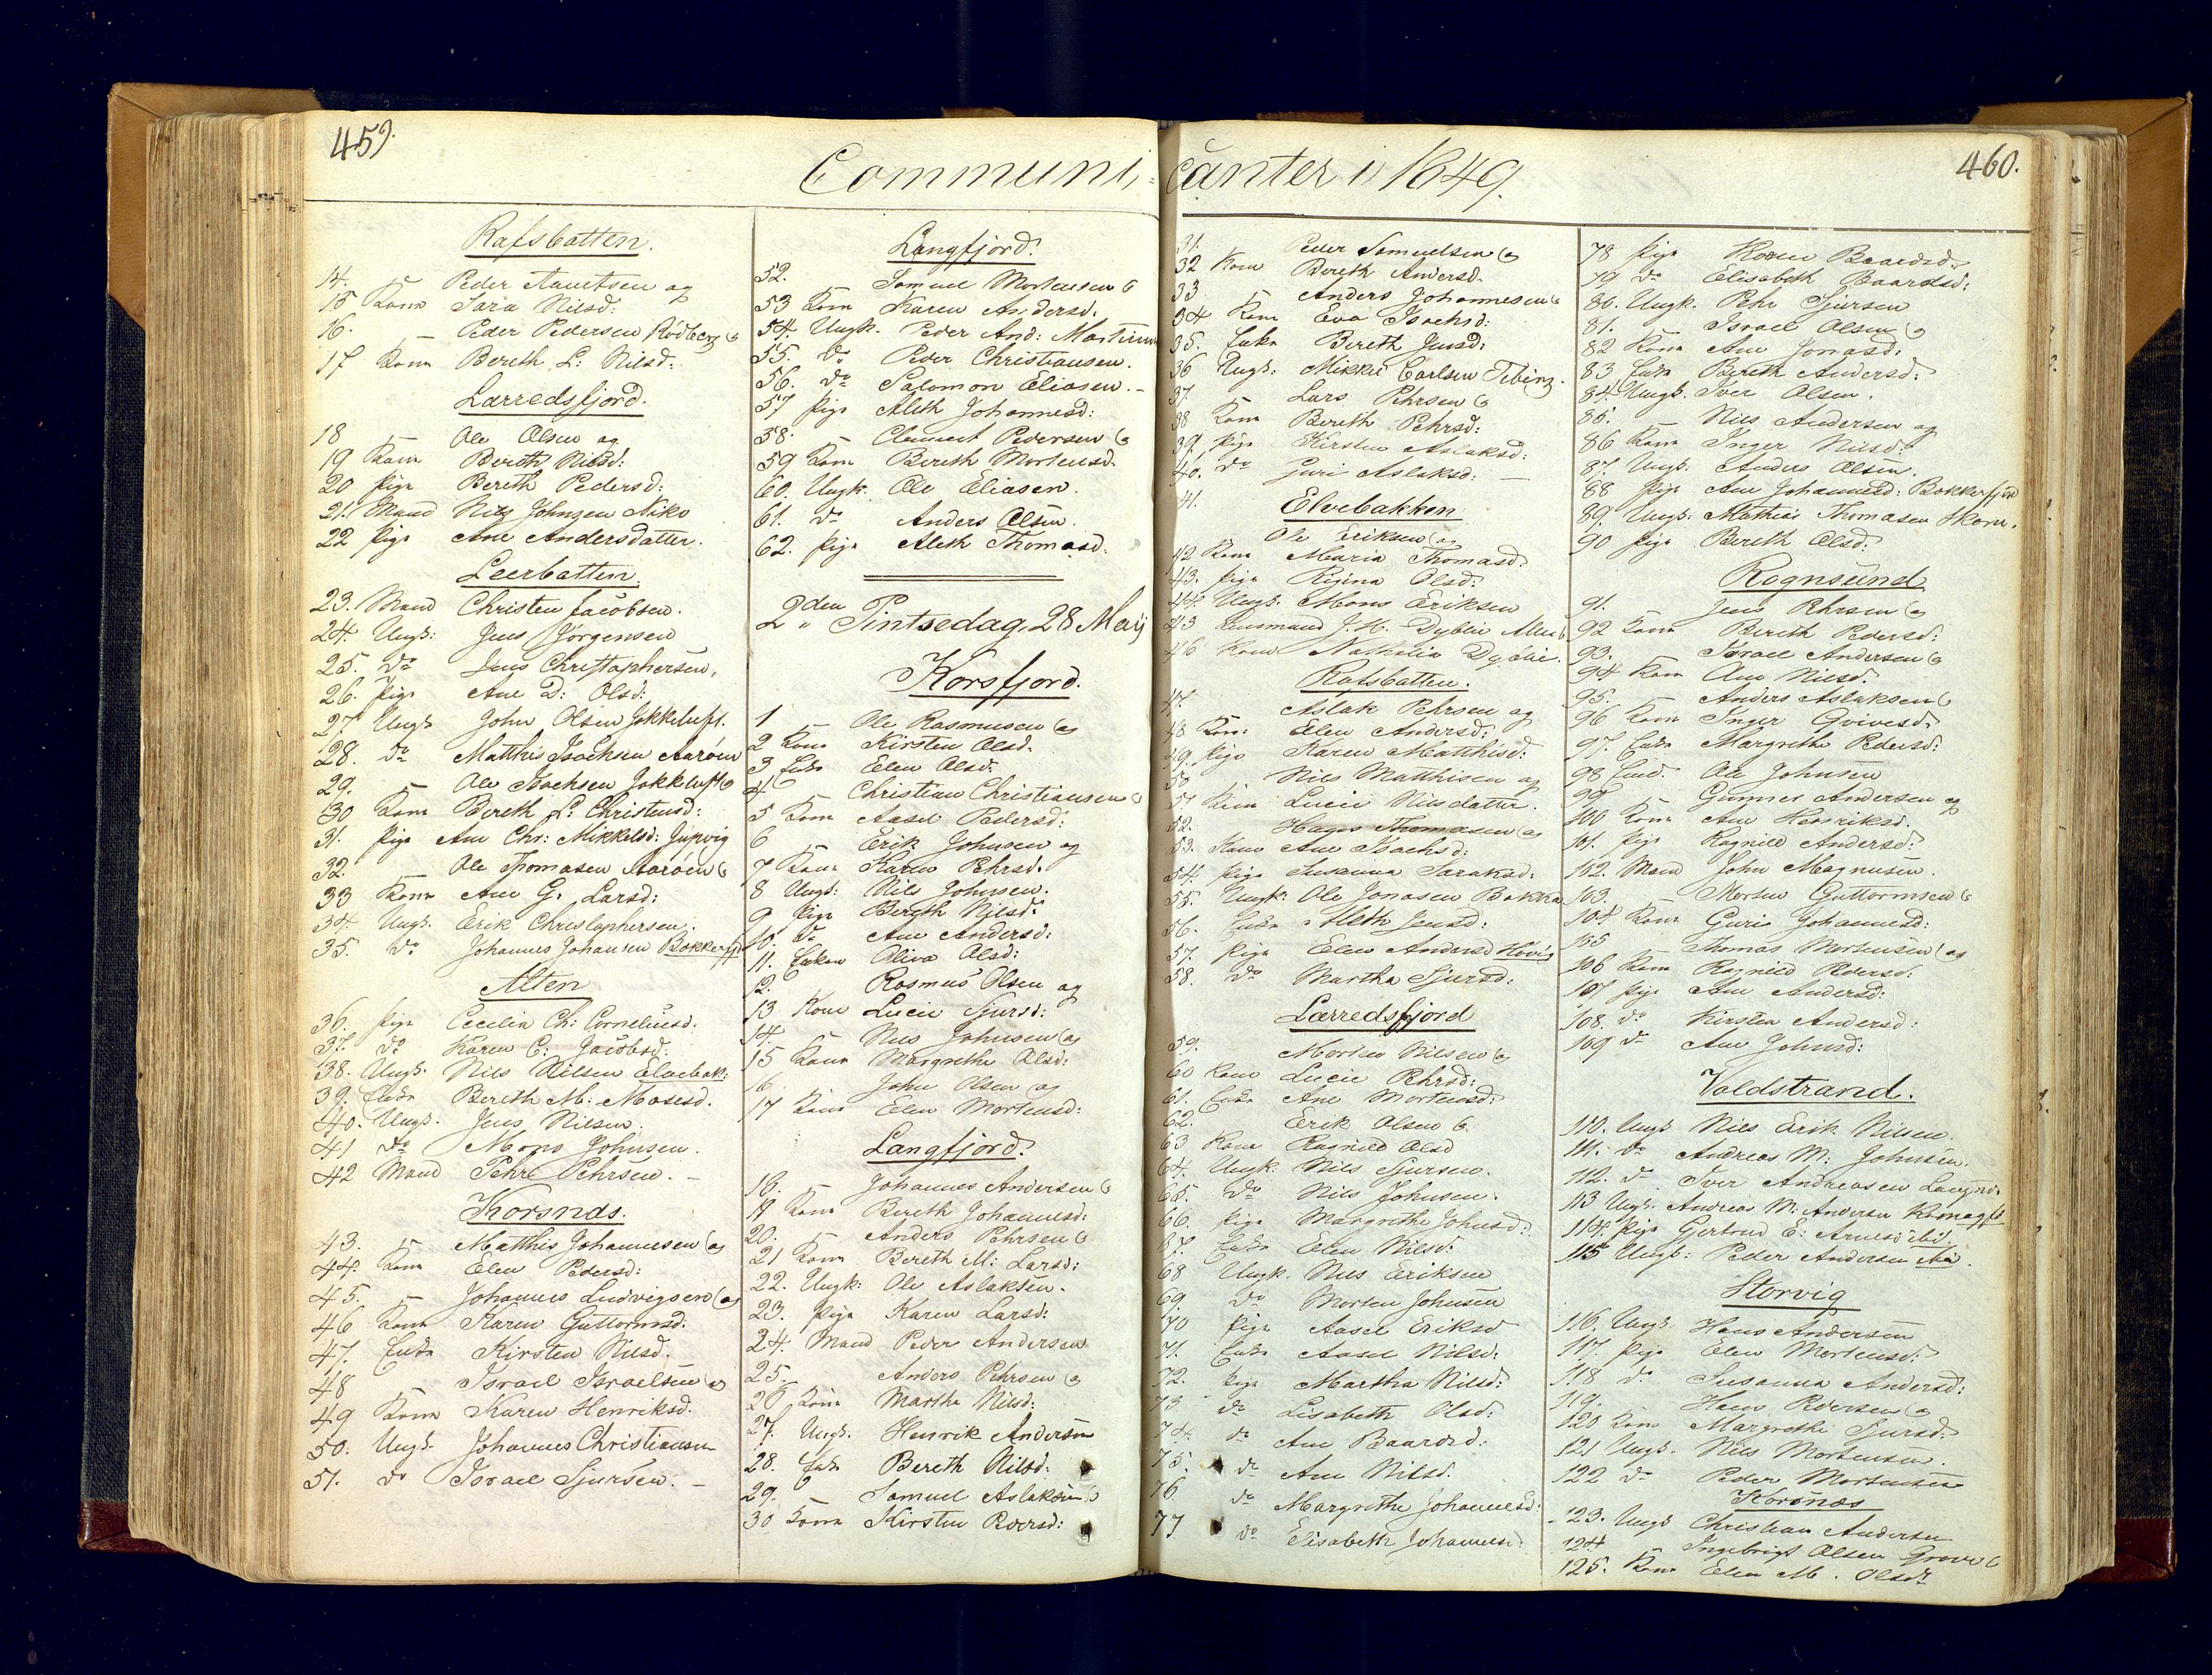 459.
Communi-
Rafsbatten.
14. – Peder Aamtsen og
15 Kone Sara Nilsd:
16. – Peder Pedersen Rødberg og
17 Kone Bereth L: Nilsd:
Lærredsfjord.
18 – Ole Olsen og
19 Kone Bereth Nilsd:
20 Pige Bereth Pedersd:
21. Mand Nils Johnsen Niko
22 Pige Ane Andersdatter.
Leerbatten.
23. Mand Christen Jacobsen.
24. Ungk: Jens Jørgensen
25. do Jens Christophersen,
26. Pige Ane D: Olsd:
27 Ungk John Olsen Jokkeluft.
28. do Matthis Isachsen Aarøen
29. – Ole Isachsen Jokkeluft og
30 Kone Bereth L: Christensd:
31. Pige Ane Chr: Mikkelsd: Jupvig
32. – Ole Thomasen Aarøen og
33 Kone Ane G. Larsd:
34. Ungk. Erik Christophersen.
35. do Johannes Johansen Bokkerfj
Alten
36. Pige Cecilia Ch: Corneliusd.
37. do Karen C: Jacobsd:
38. Ungk. Nils Nilsen Elvebak:
39. Enke Bereth M: Mosesd.
40. Ungk. Jens Nilsen.
41 do Mons Johnsen.
42 Mand Pehr Pehrsen. –
Korsnæs.
43. – Matthis Johannesen og
44. Kone Elen Pedersd:
45. – Johannes Ludvigsen og
46 Kone Karen Guttormsd:
47. Enke Kirsten Nilsd.
48 Israel Israelsen og
49 Kone Karen Henriksd.
50. Ungk. Johannes Christiansen
51. do Israel Sjursen. –
Langfjord.
52. – Samuel Mortensen og
53 Kone Karen Andersd.
54. Ungk. Peder And: Mortensen
55. do Peder Christiansen.
56. do Salomon Eliasen. –
57 Pige Aleth Johannesd:
58. – Clement Pedersen og
59 Kone Bereth Mortensd.
60. Ungk. Ole Eliasen.
61. do Anders Olsen.
62. Pige Aleth Thomasd.
2den Pintsedag, 28 Maij
Korsfjord.
1 – Ole Rasmusen og
2 Kone Kirsten Olsd.
3 Enke Elen Olsd.
4 – Christian Christiansen og
5 Kone Aasel Pedersd:
6 – Erik Johnsen og
7 Kone Karen Pehrsd.
8 Ungk: Nils Johnsen.
9 Pige Bereth Nilsd:
10. do Ane Andersd:
11. Enken Oliva Olsd:
12. Rasmus Olsen og
13 Kone Lucie Sjursd:
14. – Nils Johnsen og
15 Kone Margrethe Olsd:
16 – John Olsen og
17 Kone Elen Mortensd:
Langfjord.
18. – Johannes Andersen og
19 Kone Bereth Johannesd:
20. – Anders Pehrsen og
21 Kone Bereth M: Larsd:
22. Ungk: Ole Aslaksen.
23. Pige Karen Larsd:
24. Mand Peder Andersen
25. – Anders Pehrsen og
26 Kone Marthe Nilsd:
27. Ungk. Henrik Andersen
28. Enke Bereth Nilsd:
29. Samuel Aslaksen og
30 Kone Kirsten Pedersd:
canter i 1849.
460.
31. – Peder Samuelsen og
32 Kone Bereth Andersd.
33 – Anders Johannesen og
34 Kone Eva Isachsd:
35. Enke Bereth Jensd:
36 Ungk: Mikkel Carlsen Tibing.
37. – Lars Pehrsen og
38 Kone Bereth Pehrsd:
39. Pige Kirsten Aslaksd:
40. do Guri Aslaksd: –
Elvebakken
41. Ole Eriksen og
42 Kone Maria Thomasd:
43. Pige Regina Olsd:
44. Ungk. Mons Eriksen
45 Lensmand J. H. Dyblie
46 Kone Nathalia Dyblie.
Rafsbatten.
47. Aslak Pehrsen og
48 Kone Elen Andersd:
49. Pige Karen Matthisd:
50 Nils Matthisen og
51 Kone Lucie Nilsdatter.
52. Hans Thomasen og
53. Kone Ane Isachsd:
54. Pige Susanna Saraksd:
55. Ungk: Ole Jonasen Bokka
56. Enke Aleth Jensd:
57. Pige Elen Andersd Hovig
58. do Martha Sjursd:
Lærredsfjord
59. – Morten Nilsen og
60 Kone Lucie Pehrsd:
61. Enke Ane Mortensd:
62. Erik Olsen og
63 Kone Ragnild Olsd
64. Ungk. Nils Sjursen.
65. do Nils Johnsen.
66. Pige Margrethe Johnsd:
67. Enke Elen Nilsd:
68 Ungk. Nils Eriksen
69 do Morten Johnsen
70 Pige Aasel Eriksd
71. Enke Aasel Nilsd:
72. Pige Martha Nilsd:
73 do Lisabeth Olsd:
74. do Ane Baardsd:
75. do Ane Nilsd.
76 do Margrethe Johannesd:
77 do Elisabeth Johannesd:
78 Pige Karen Baardsd.
79 do Elisabeth Baardsd:
80. Ungk. Pehr Sjursen
81. – Israel Olsen og
82 Kone Ane Jonasd:
83 Enke Bereth Andersd:
84. Ungk. Iver Olsen.
85. – Nils Andersen og
86 Kone Inger Nilsd:
87. Ungk. Anders Olsen.
88 Pige Ane Johannesd: Bokkerfjord
89. Ungk: Mathias Thomasen Skorv.
90 Pige Bereth Olsd:
Rognsund
91. Jens Pehrsen og
92 Kone Bereth Pedersd:
93. – Israel Andersen og
94 Kone Ane Nilsd.
95. – Anders Aslaksen og
96 Kone Inger Qvivesd.
97. Enke Margrethe Pedersd:
98 Ole Johnsen
99 – Gunner Andersen og
100 Kone Ane Henriksd.
101. Pige Ragnild Andersd:
102. Mand John Magnusen.
103. – Morten Guttormsen og
104 Kone Guri Johannesd:
105 – Thomas Mortensen og
106 Kone Ragnild Pedersd:
107 Pige Ane Andersd:
108. do Kirsten Andersd:
109 do Ane Johnsd:
Voldstrand.
110. Ungk Nils Erik Nilsen.
111. do Andreas M: Johnsen.
112. do Iver Andreasen
113 Ungk. Andreas M: Andersen Komagfj
114. Pige Gjertrud E: Arnesd ibid.
115 Ungk: Peder Andersen Aa.
Storvig
116. Ungk. Hans Andersen
117. Pige Elen Mortensd:
118 do Susanna Andersd:
119. Hans Pedersen og
120 Kone Margrethe Sjursd:
121 Ungk. Nils Mortensen.
122 do Peder Mortensen
Korsnæs
123. Ungk Christian Andersen
124 Ingebrigt Olsen Grove og
125. Kone Elen M. Olsd: